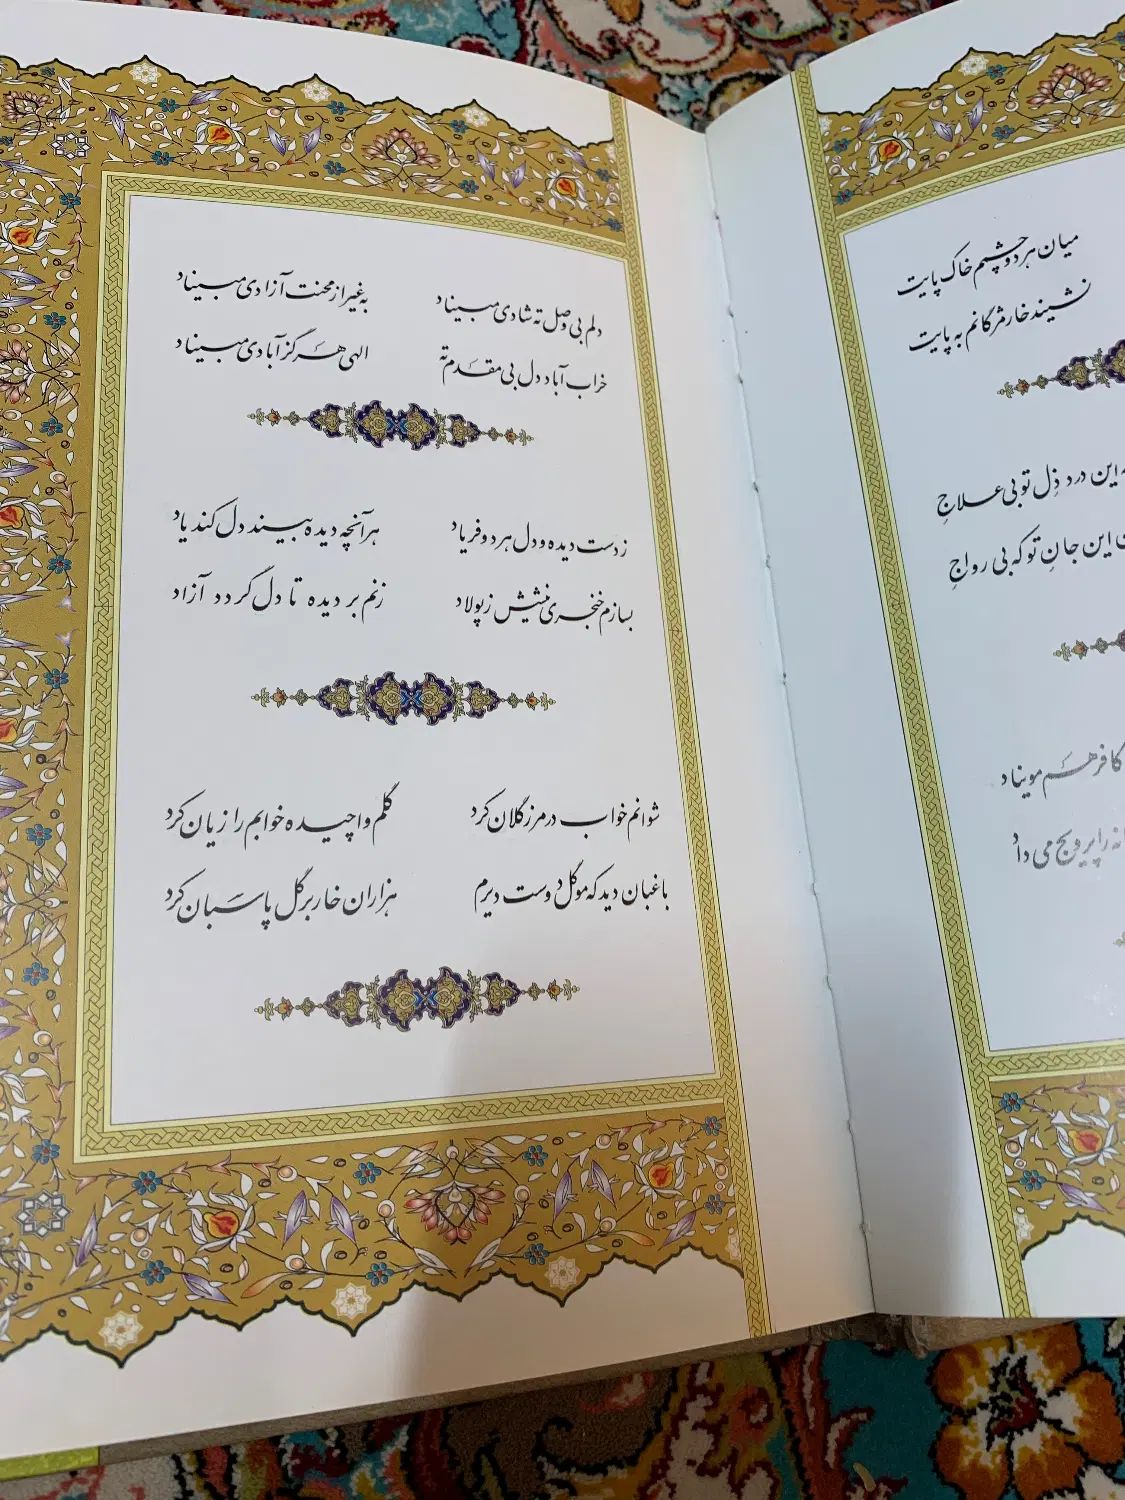 میان هر دو چشم خاک پایت
نشیند خار مژگانم به پایت
این درد دِل تو بی علاجِ
این جانِ تو که بی رواجِ
کافر هم موینا د
را پرویج می داد
دلم بی وصل ته شادی مبیناد    به غیر از محنت آزادی مبیناد
خراب آباد دل بی مقدم ته    الهی هرگز آبادی مبیناد
ز دست دیده و دل هر دو فریاد    هر آنچه دیده بیند دل کند یاد
بسازم خنجری نیشش ز پولاد    زنم بر دیده تا دل گردد آزاد
شوانم خواب در مرز گلان کرد    گلم واچیده خوابم را زیان کرد
باغبان دید که مو گل دوست دیرم    هزاران خار بر گل پاسبان کرد